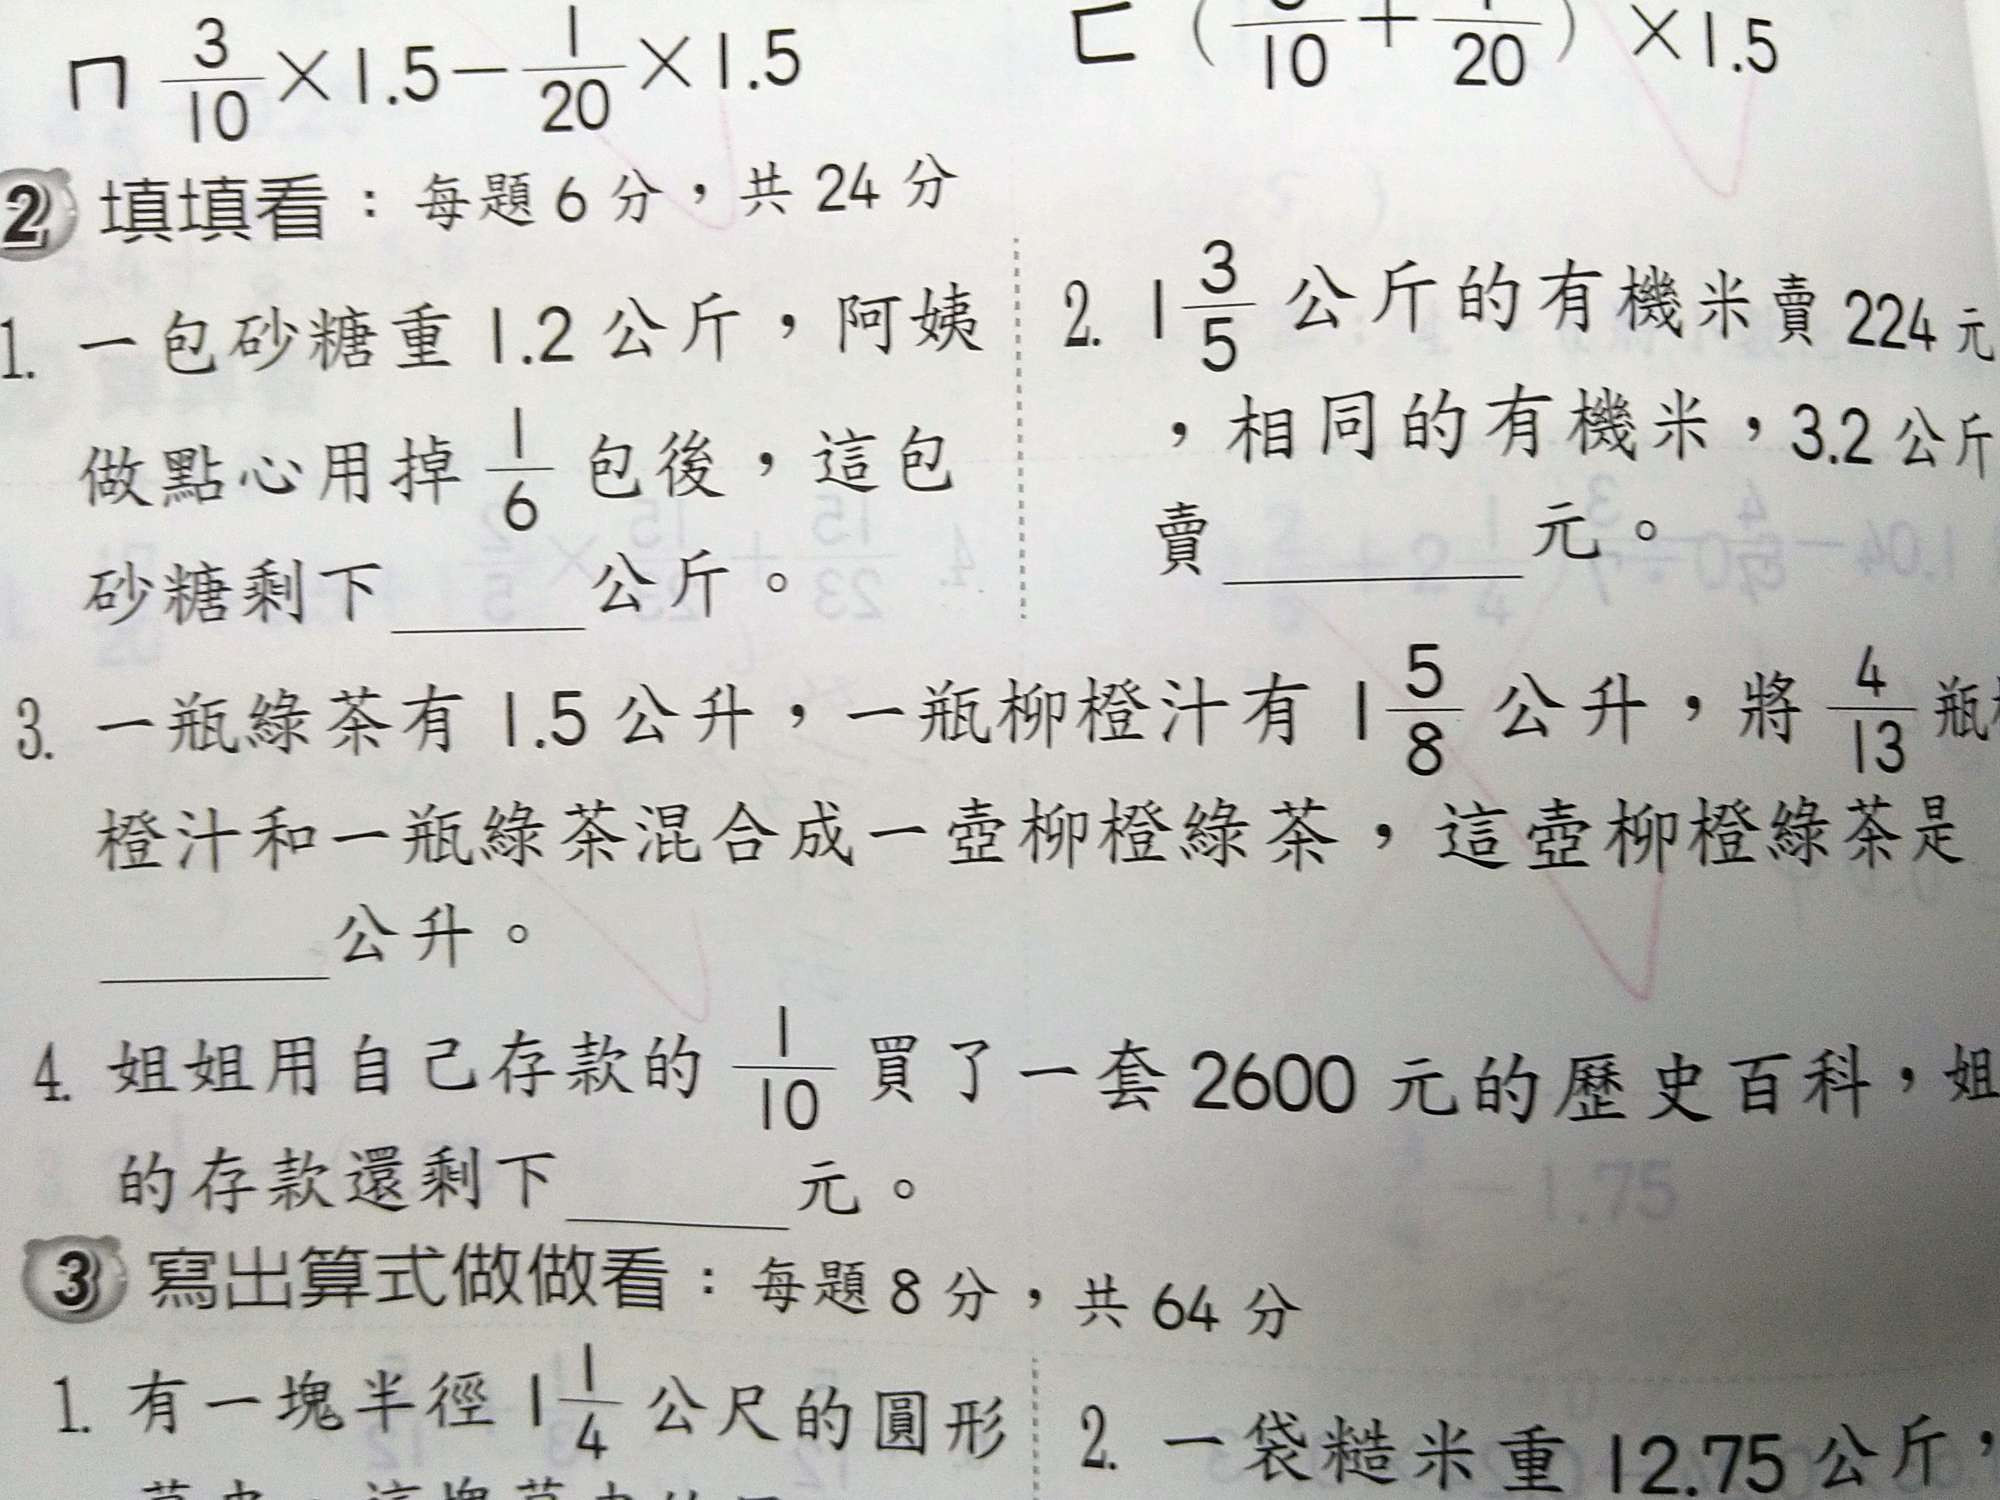 ㄇ 3/10×1.5−1/20×1.5
ㄈ ( /10+ /20)×1.5
2 填填看：每題6分，共24分
1. 一包砂糖重1.2公斤，阿姨
做點心用掉1/6包後，這包
砂糖剩下______公斤。
2. 1 3/5公斤的有機米賣224元
，相同的有機米，3.2公斤
賣______元。
3. 一瓶綠茶有1.5公升，一瓶柳橙汁有1 5/8公升，將4/13瓶
橙汁和一瓶綠茶混合成一壺柳橙綠茶，這壺柳橙綠茶是
______公升。
4. 姐姐用自己存款的1/10買了一套2600元的歷史百科，姐
的存款還剩下______元。
3 寫出算式做做看：每題8分，共64分
1. 有一塊半徑1 1/4公尺的圓形
2. 一袋糙米重12.75公斤，